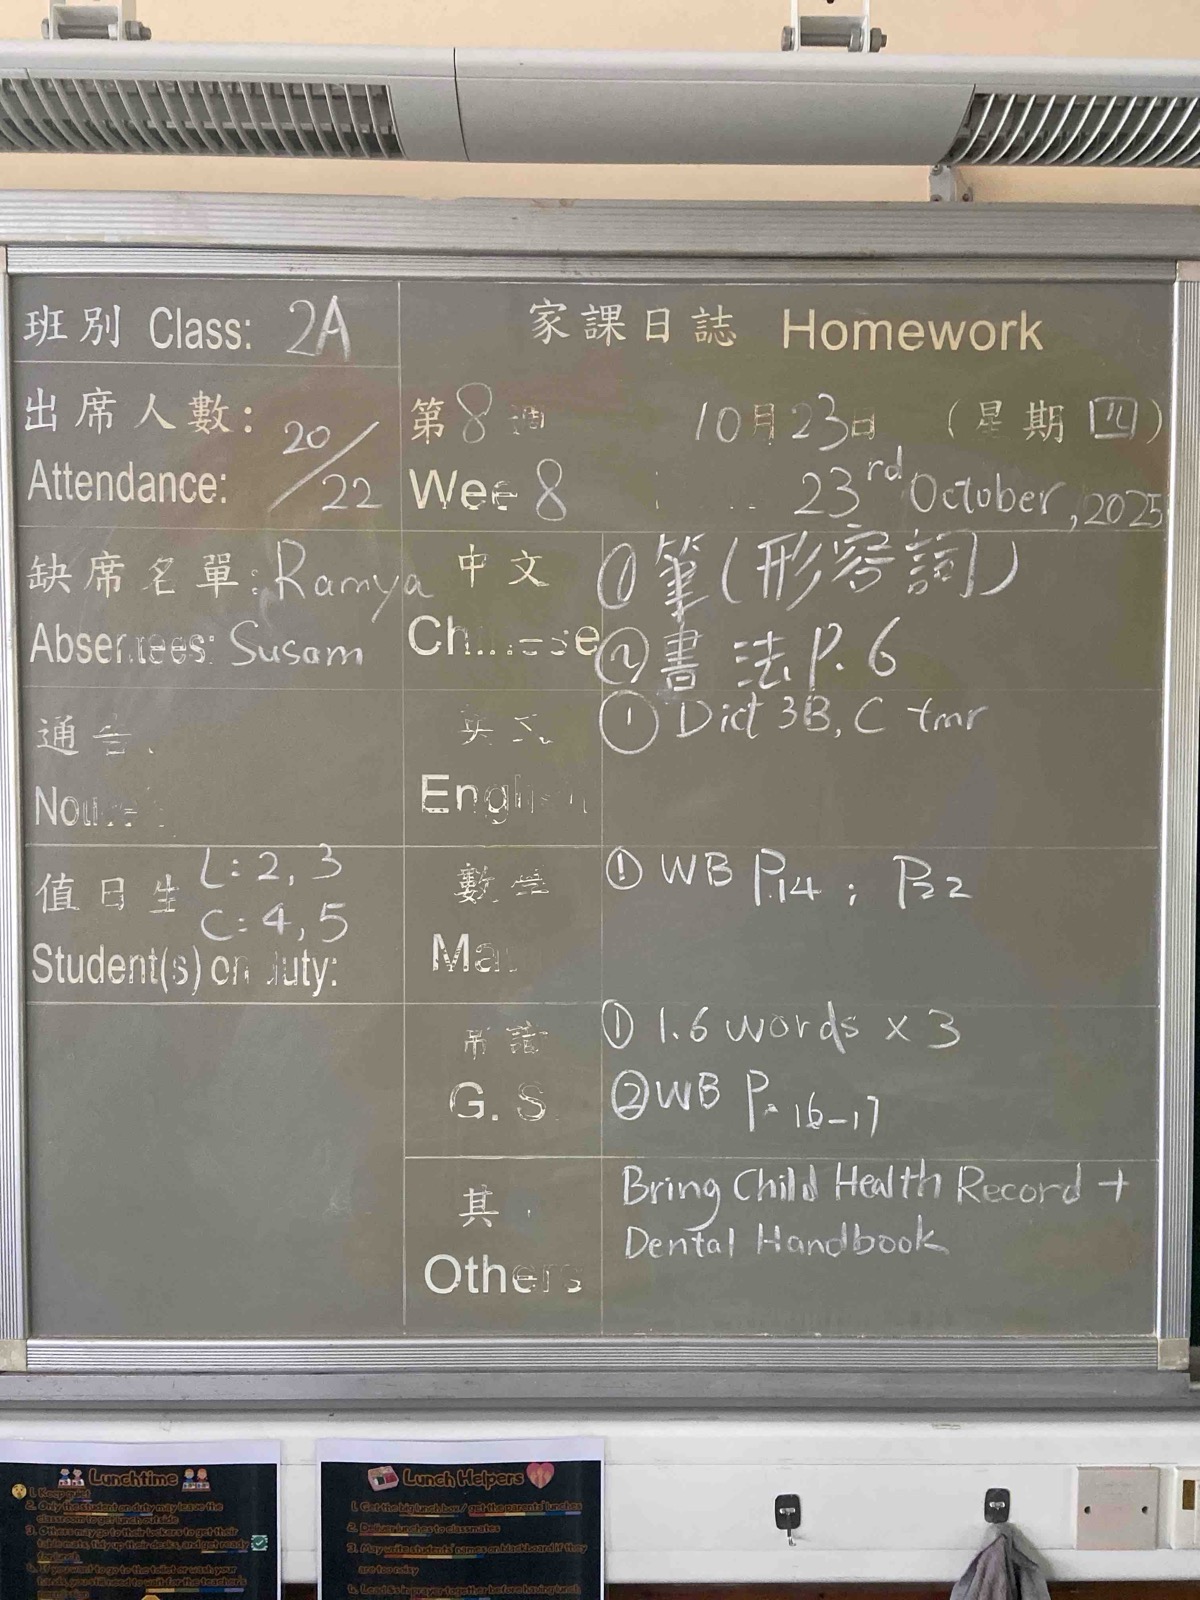 班別 Class: 2A
家課日誌 Homework
出席人數: 20/22
Attendance:
第8週 10月23日 (星期四)
Wee 8 23rd October, 2025
缺席名單: Ramya
Absentees: Susam
中文
Chinese
① 筆(形容詞)
② 書法 P. 6
通告
Notice
英文
English
① Dict 3B, C tmr
值日生 L: 2, 3
C: 4, 5
Student(s) on duty:
數學
Ma
① WB P.14 ; P22
常識
G. S.
① 1.6 words x 3
② WB P. 16-17
其
Others
Bring Child Health Record +
Dental Handbook
Lunchtime
1. Keep quiet
2. Only the student on duty may leave the
classroom to get lunch outside
3. Others may go to their lockers to get their
table mats, tidy up their desks, and get ready
for lunch
4. If you want to go to the toilet or wash your
hands, you still need to wait for the teacher's
Lunch Helpers
1. Get the big lunch box / get the parents' lunches
2. Deliver lunches to classmates
3. May write students' names on blackboard if they
are too noisy
4. Lead Ss in prayer together before having lunch